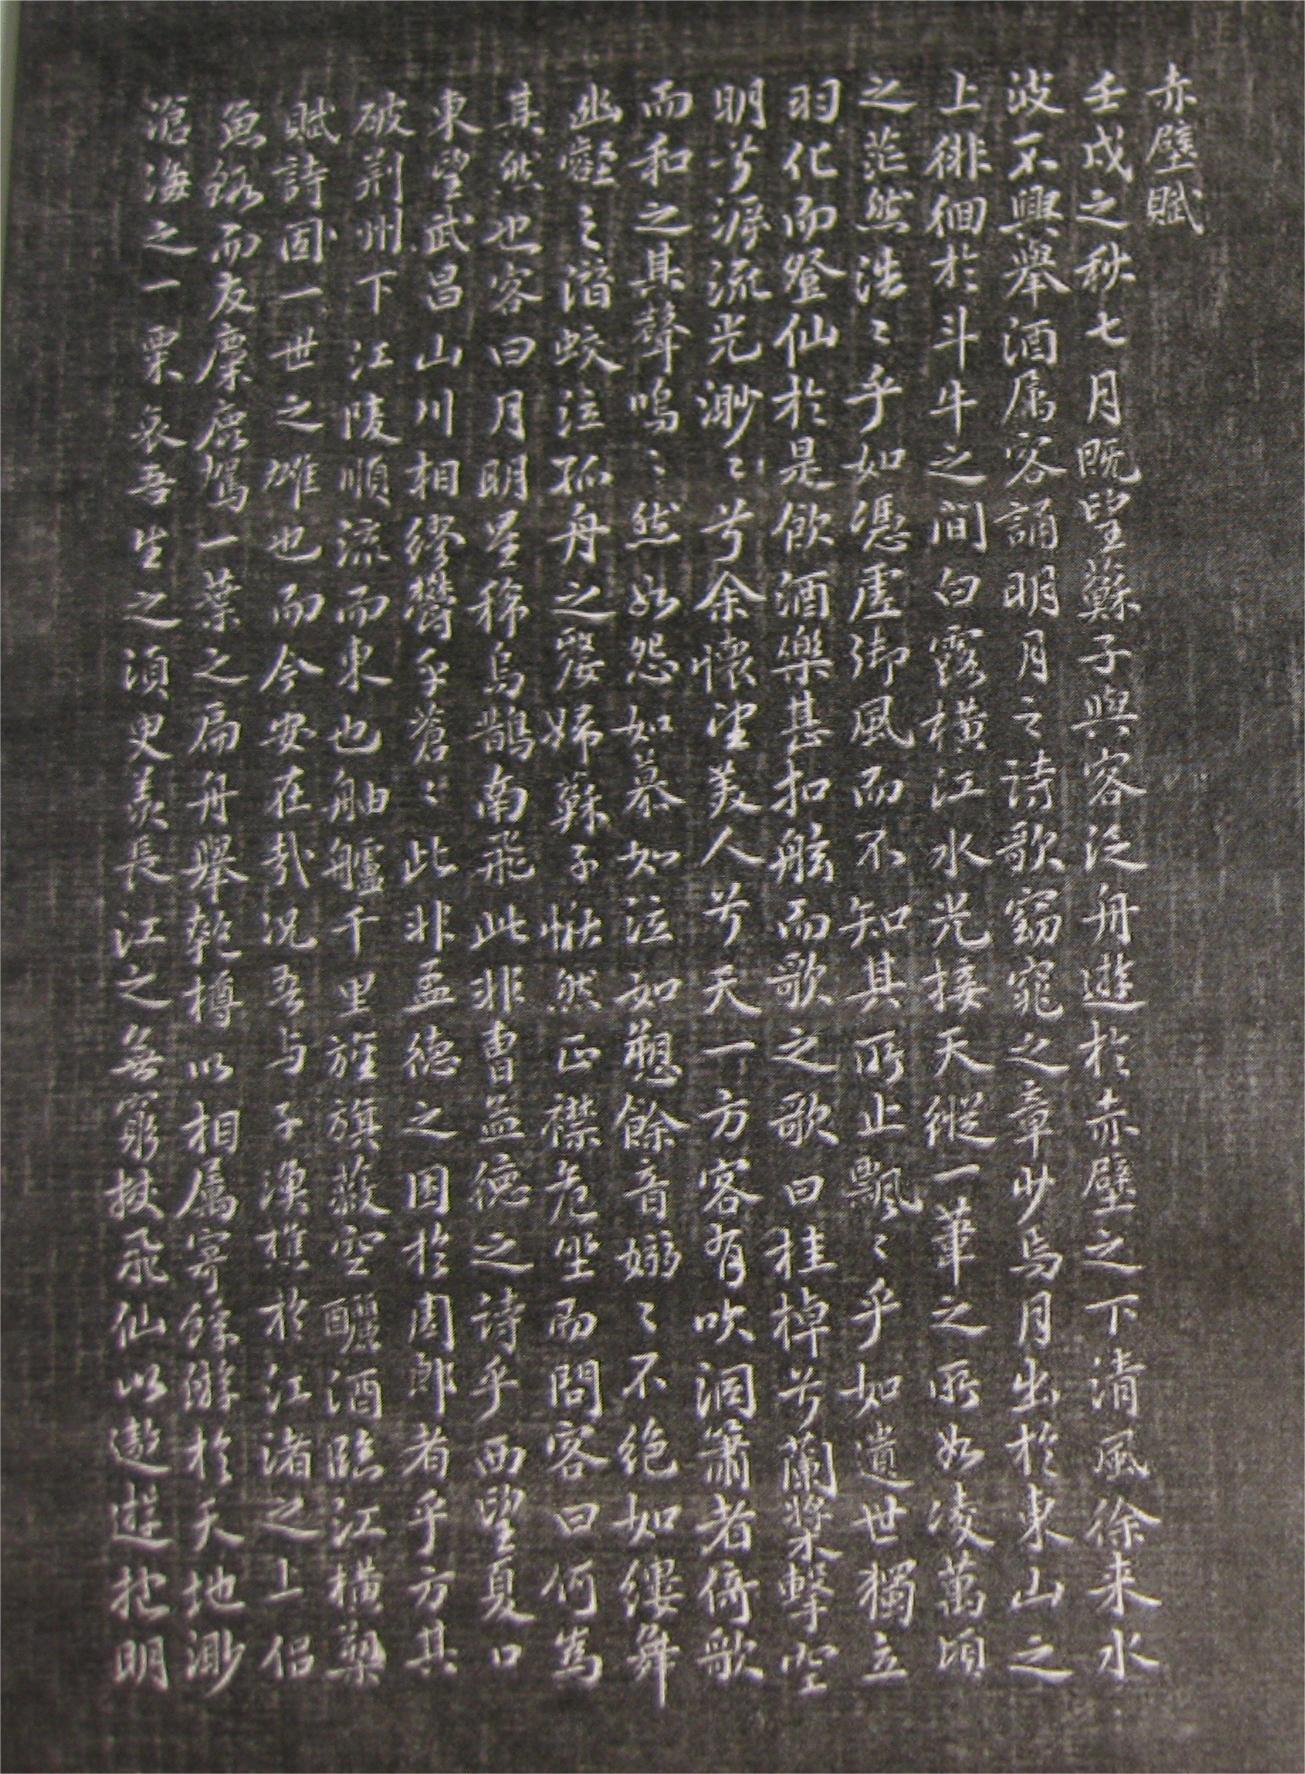 赤壁賦
壬戌之秋七月既望蘇子與客泛舟遊於赤壁之下清風徐来水
波不興舉酒属客誦明月之詩歌窈窕之章少焉月出於東山之
上徘徊於斗牛之间白露横江水光接天縱一葦之所如凌萬頃
之茫然浩〻乎如馮虚御風而不知其所止飄〻乎如遺世獨立
羽化而登仙於是飲酒樂甚扣舷而歌之歌曰桂棹兮蘭槳擊空
明兮泝流光渺〻兮余懷望美人兮天一方客有吹洞簫者倚歌
而和之其聲嗚〻然如怨如慕如泣如愬餘音嫋〻不绝如縷舞
幽壑之潛蛟泣孤舟之嫠婦蘇子愀然正襟危坐而問客曰何為
其然也客曰月明星稀烏鵲南飛此非曹孟德之詩乎西望夏口
東望武昌山川相繆鬱乎蒼〻此非孟德之困於周郎者乎方其
破荆州下江陵順流而東也舳艫千里旌旗蔽空釃酒臨江横槊
賦詩固一世之雄也而今安在哉况吾与子漁樵於江渚之上侣
魚鰕而友麋鹿駕一葉之扁舟舉匏樽以相属寄蜉蝣於天地渺
滄海之一粟哀吾生之須臾羨長江之無窮挾飛仙以遨遊抱明